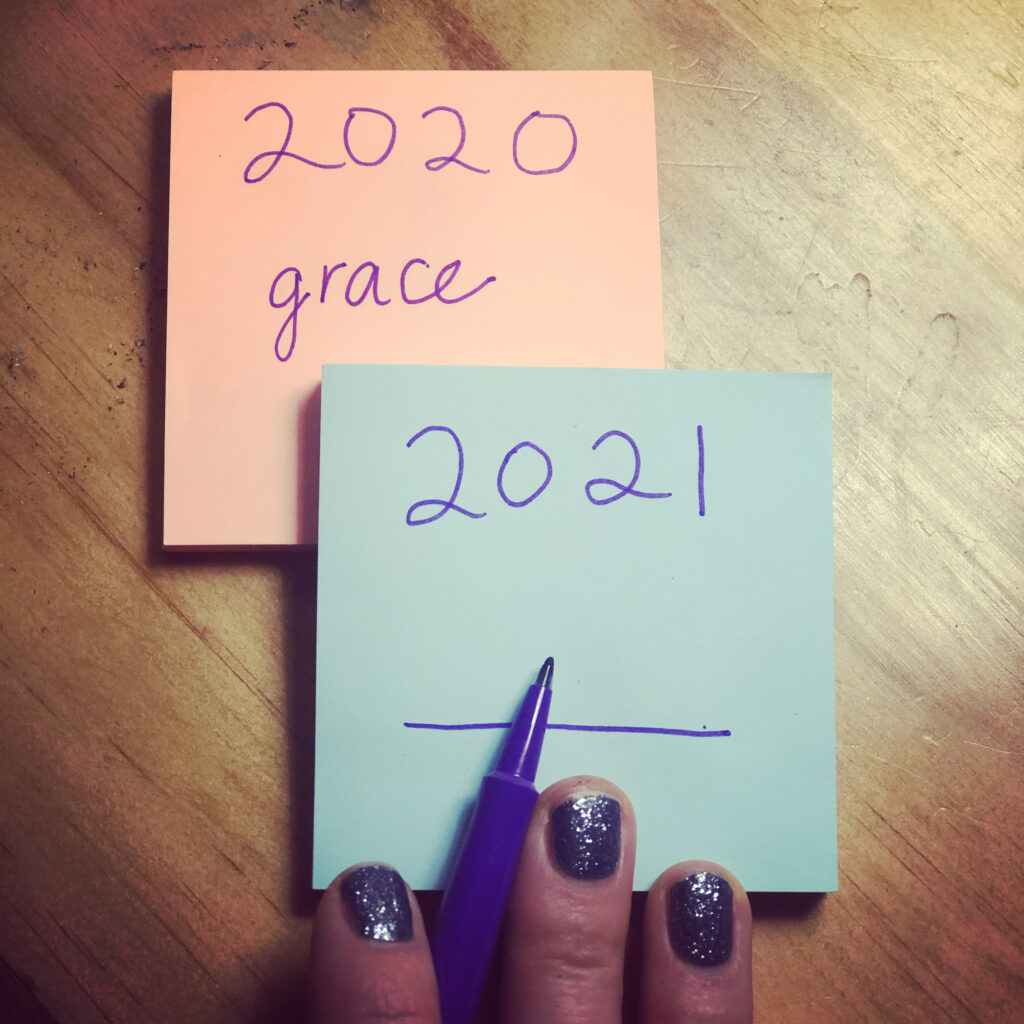 2020
grace
2021